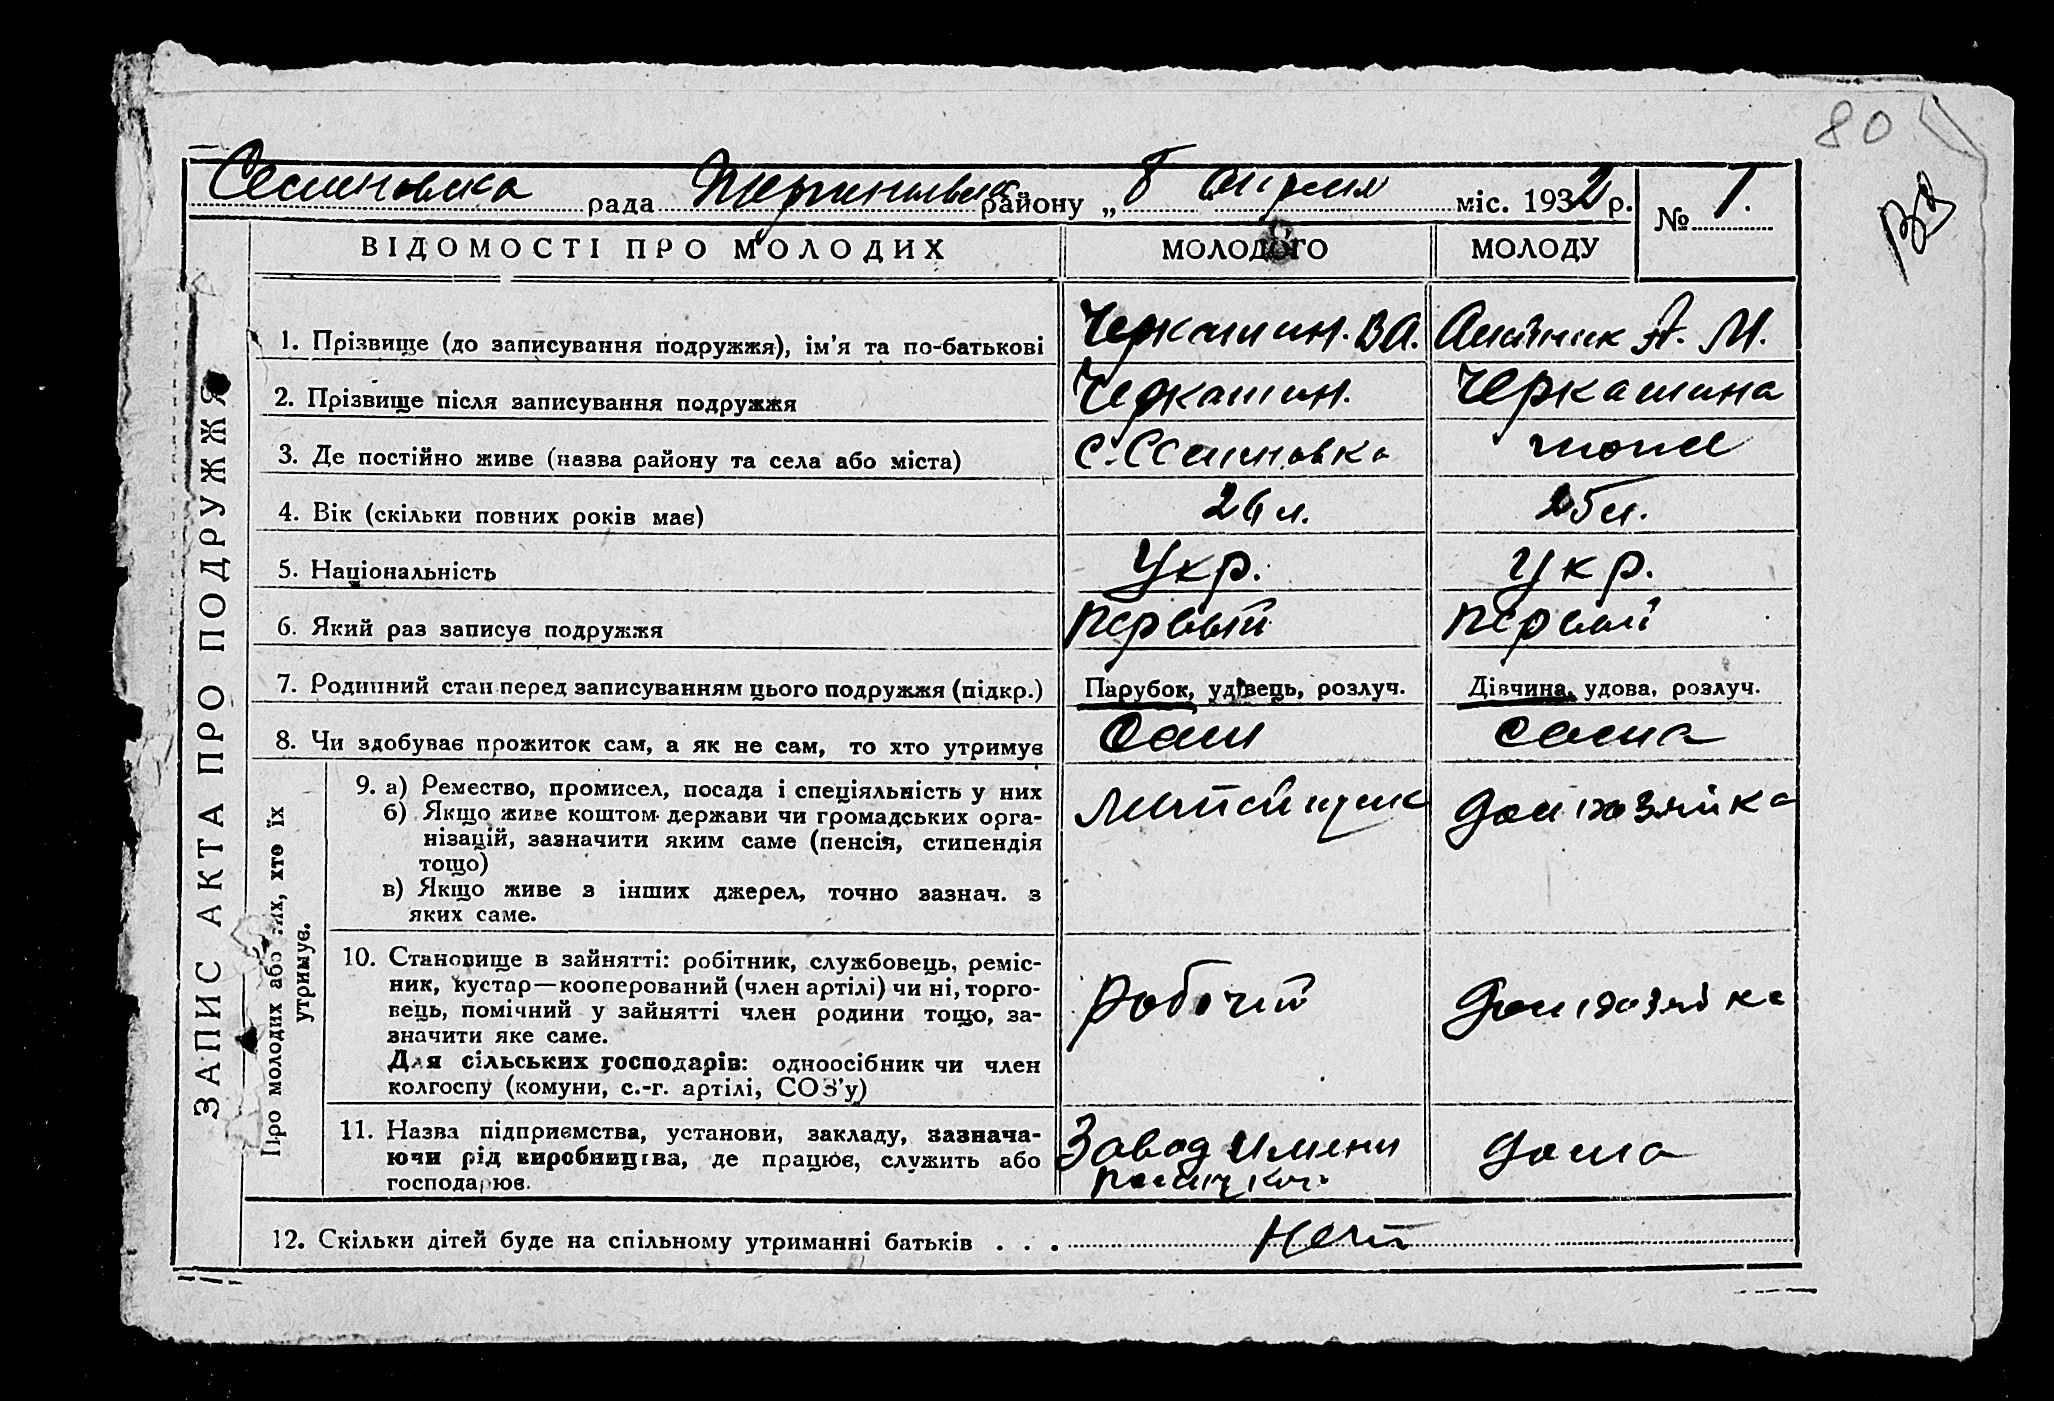 80
Семиновка рада району „ 8 апреля міс. 1932 р. № 1.
ВЗ
ВІДОМОСТІ ПРО МОЛОДИХ МОЛОДОГО МОЛОДУ
ЗАПИС АКТА ПРО ПОДРУЖЖЯ
1. Прізвище (до записування подружжя), ім'я та по-батькові Черкашин. В А. А. М.
2. Прізвище після записування подружжя Черкашин. Черкашина
3. Де постійно живе (назва району та села або міста) с. Семиновка тоже
4. Вік (скільки повних років має) 26 л. 25 л.
5. Національність Укр. Укр.
6. Який раз записує подружжя первый первый
7. Родинний стан перед записуванням цього подружжя (підкр.) Парубок, удівець, розлуч. Дівчина, удова, розлуч.
8. Чи здобуває прожиток сам, а як не сам, то хто утримує Сам сама
Про молодих або тих, хто їх
утримує.
9. а) Ремество, промисел, посада і спеціяльність у них Литейщик домхозяйка
б) Якщо живе коштом держави чи громадських орга-
нізацій, зазначити яким саме (пенсія, стипендія
тощо)
в) Якщо живе з інших джерел, точно зазнач. з
яких саме.
10. Становище в зайнятті: робітник, службовець, реміс-
ник, кустар—кооперований (член артілі) чи ні, торго-
вець, помічний у зайнятті член родини тощо, за-
значити яке саме. робочий домхозяйка
Для сільських господарів: одноосібник чи член
колгоспу (комуни, с.-г. артілі, СОЗ'у)
11. Назва підприємства, установи, закладу, зазнача- Завод имени дома
ючи рід виробництва, де працює, служить або
господарює.
12. Скільки дітей буде на спільному утриманні батьків . . . Нет